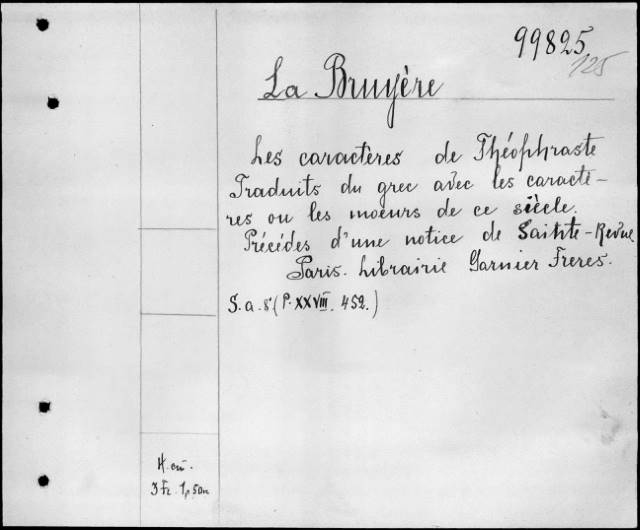 99825
125
La Bruyère
Les caractères de Théophraste
Traduits du grec avec les caractè-
res ou les moeurs de ce siècle.
Précédes d'une notice de Sainte-Revue
Paris. Librairie Garnier Freres.
S.a. 8° (P. XXVIII. 452.)
3 Fr. 1,50